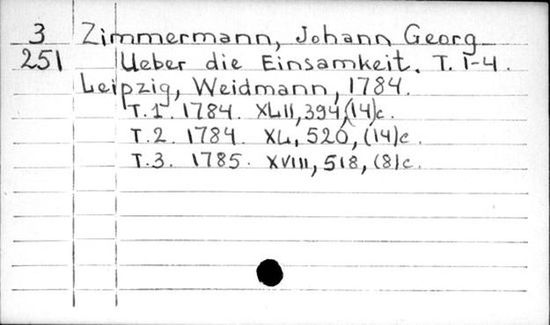 3 Zimmermann, Johann Georg
251 Ueber die Einsamkeit. T. 1-4.
Leipzig, Weidmann, 1784.
T.1. 1784. XLII, 394, (14)c.
T.2. 1784. XL, 520, (14)c.
T.3. 1785. XVIII, 518, (8)c.